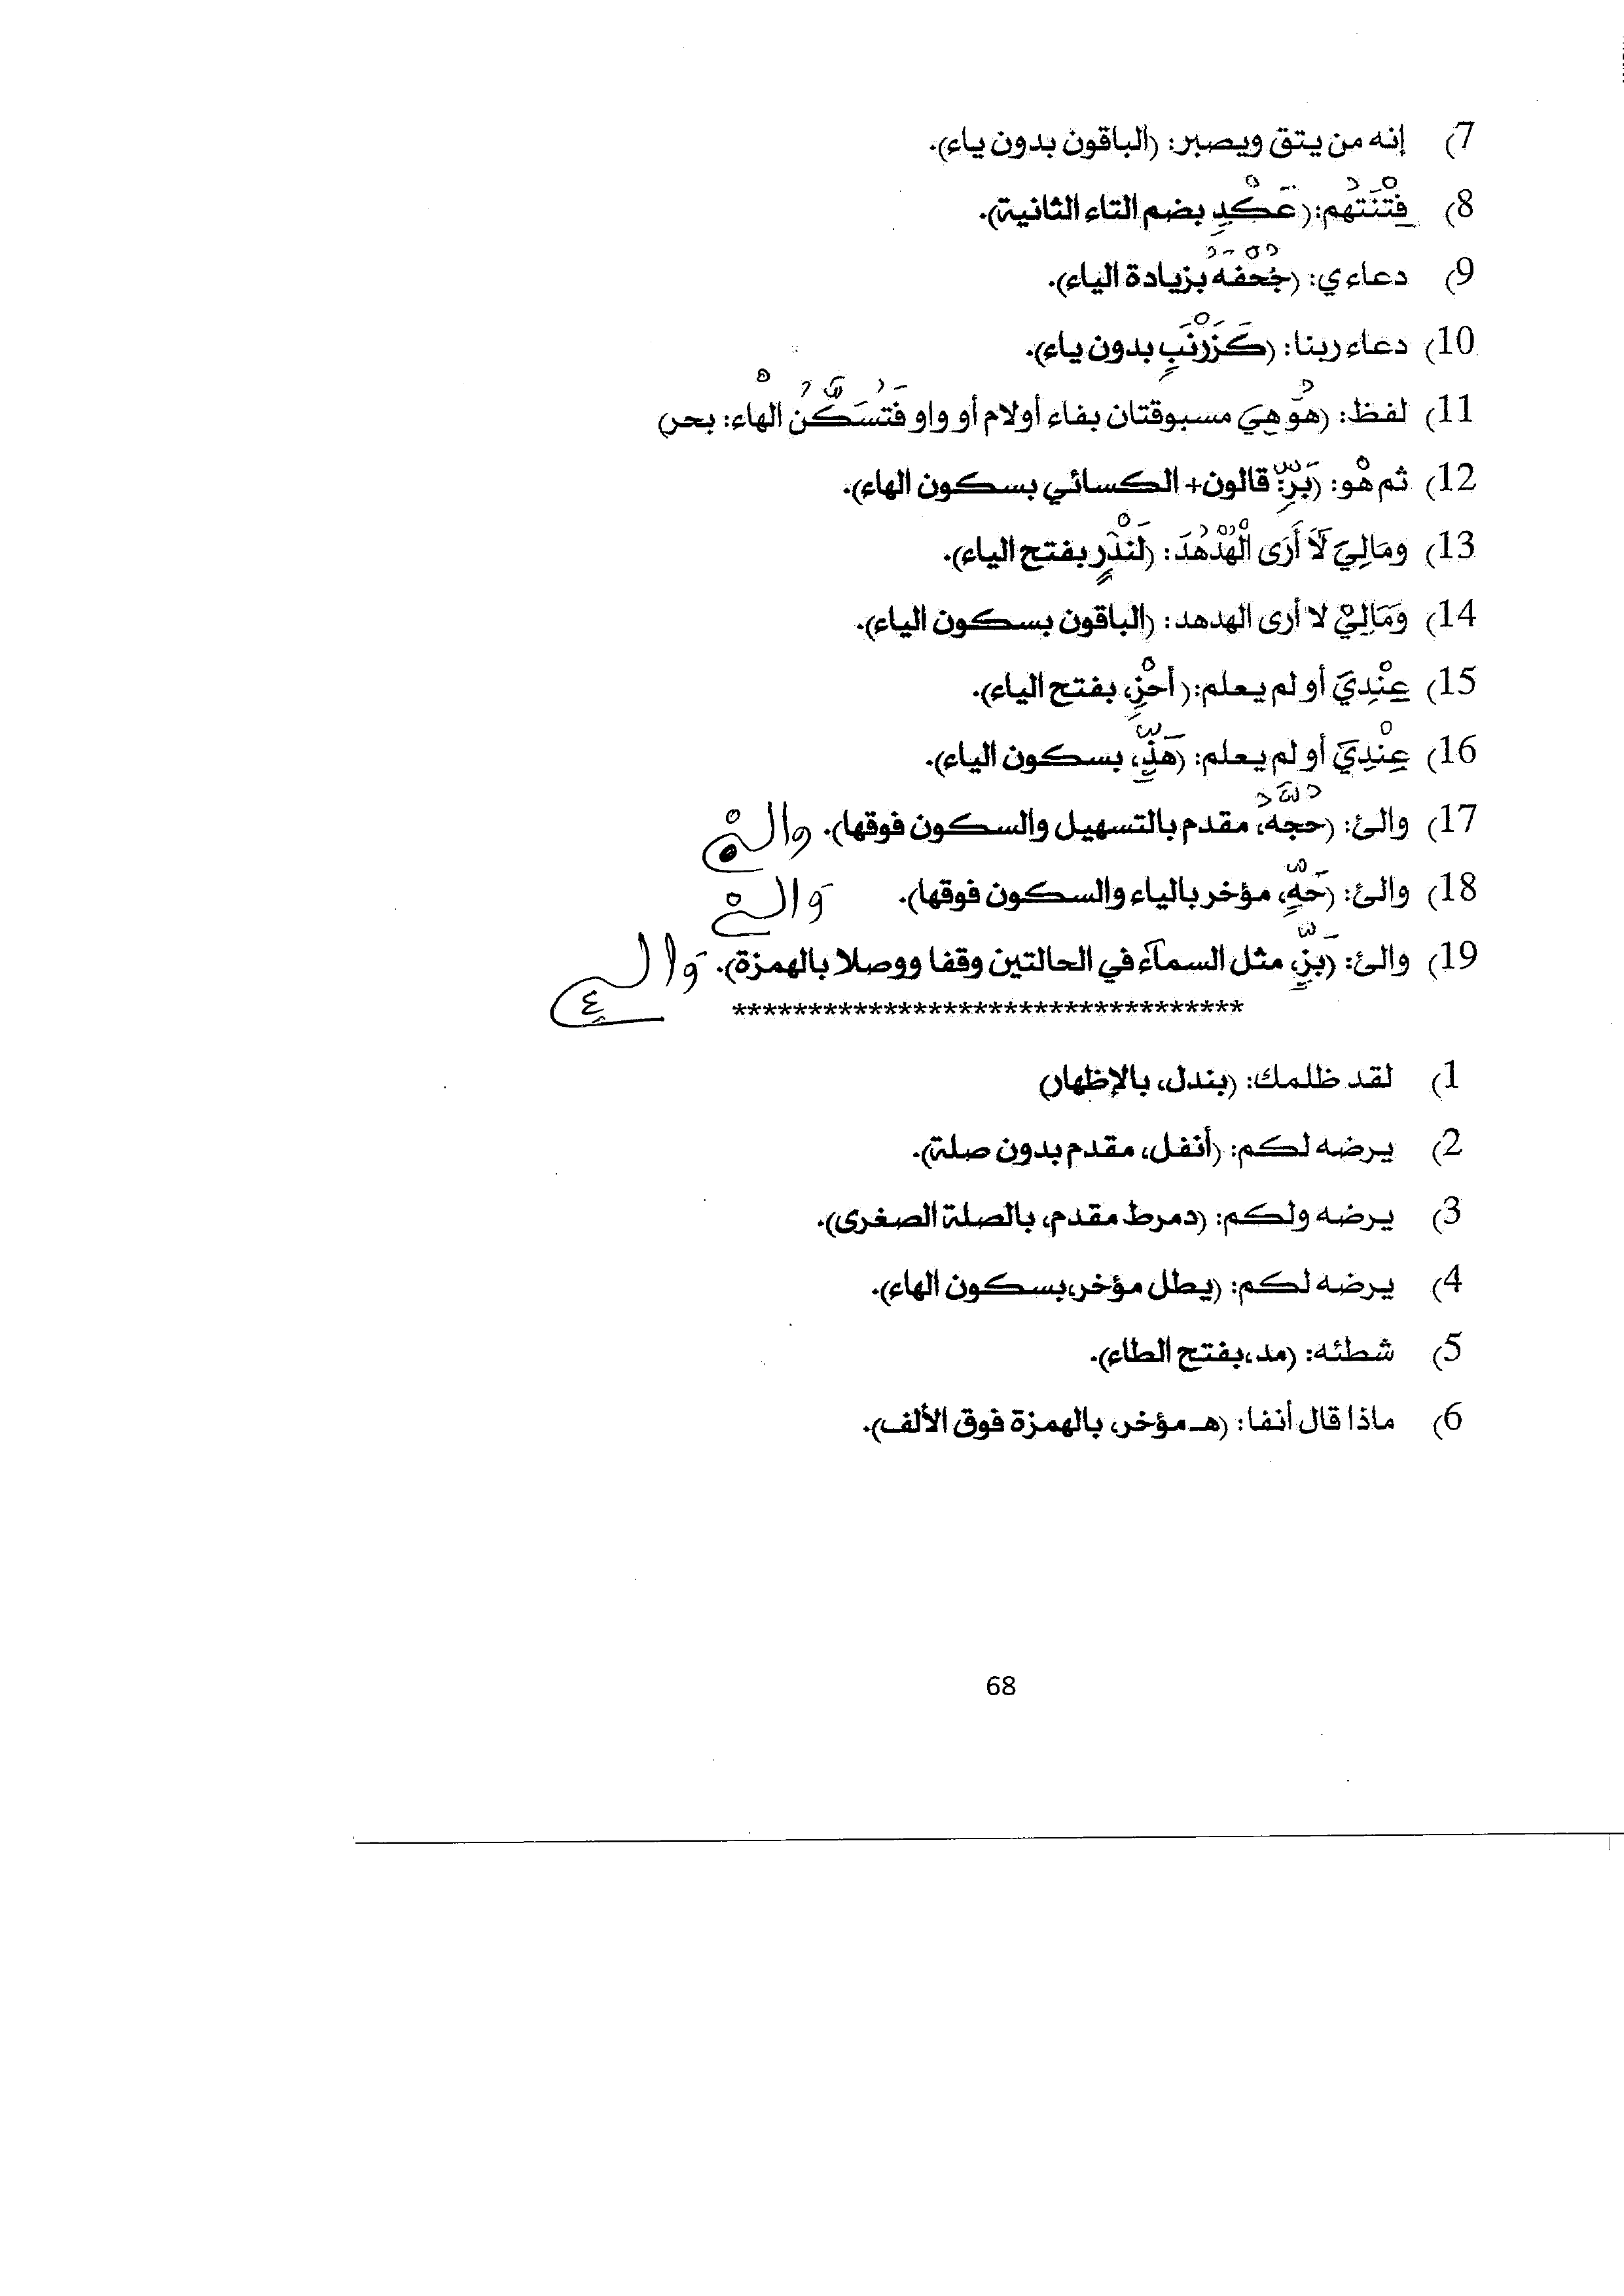 7) إنه من يتق ويصبر: (الباقون بدون ياء).
8) فِتْنَتُهُم: (عَكْدٍ بضم التاء الثانية).
9) دعاءي: (جُحْفَهُ بزيادة الياء).
10) دعاء ربنا: (كَزَرْنَبٍ بدون ياء).
11) لفظ: (هُوَ هِيَ مسبوقتان بفاء أولام أو واو فَتُسَكَّنُ الْهاء: بحر)
12) ثم هْو: (بَرٍّ: قالون+ الكسائي بسكون الهاء).
13) ومَالِيَ لَآ أَرَى الْهُدْهُدَ: (لَنْذَرٍ بفتح الياء).
14) وَمَالِيْ لا أرى الهدهد: (الباقون بسكون الياء).
15) عِنْدِيَ أو لم يعلم: (أحْزِ، بفتح الياء).
16) عِنْدِيَ أو لم يعلم: (هَذٍّ، بسكون الياء).
17) والئ: (حجهُ، مقدم بالتسهيل والسكون فوقها).
18) والئ: (حَهٍّ، مؤخر بالياء والسكون فوقها). وَاليْ
19) والئ: (بَزٍّ، مثل السمآء في الحالتين وقفا ووصلا بالهمزة). وَالىء
**********************************
1) لقد ظلمك: (بندل، بالإظهار)
2) يرضه لكم: (أنفل، مقدم بدون صلة).
3) يرضه ولكم: (دمرط مقدم، بالصلة الصغرى).
4) يرضه لكم: (يطل مؤخر،بسكون الهاء).
5) شطئه: (مد،بفتح الطاء).
6) ماذا قال أنفا: (هـ مؤخر، بالهمزة فوق الألف).
68